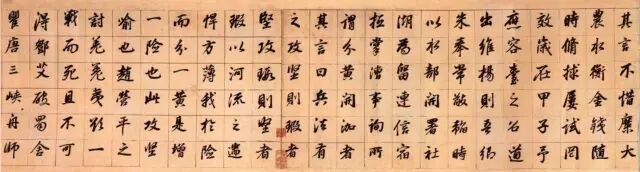 其言不惜糜大
農水衡金錢随
時脩捄屢試罔
效歲在甲子予
應容臺之召道
出維楊則吾鄉
朱奉常敬韜時
以水部開署社
湖為留連信宿
抵掌事詢所
謂分黃開泇者
其言曰兵法有
之攻堅則瑕者
堅攻瑕則堅者
瑕以河流之遄
悍方薄我於險
而分一黃是增
一險也此攻堅
喻也趙營平之
討羌羌夷一
戰而死且不可
得鄧艾破蜀舍
瞿唐三峽舟師